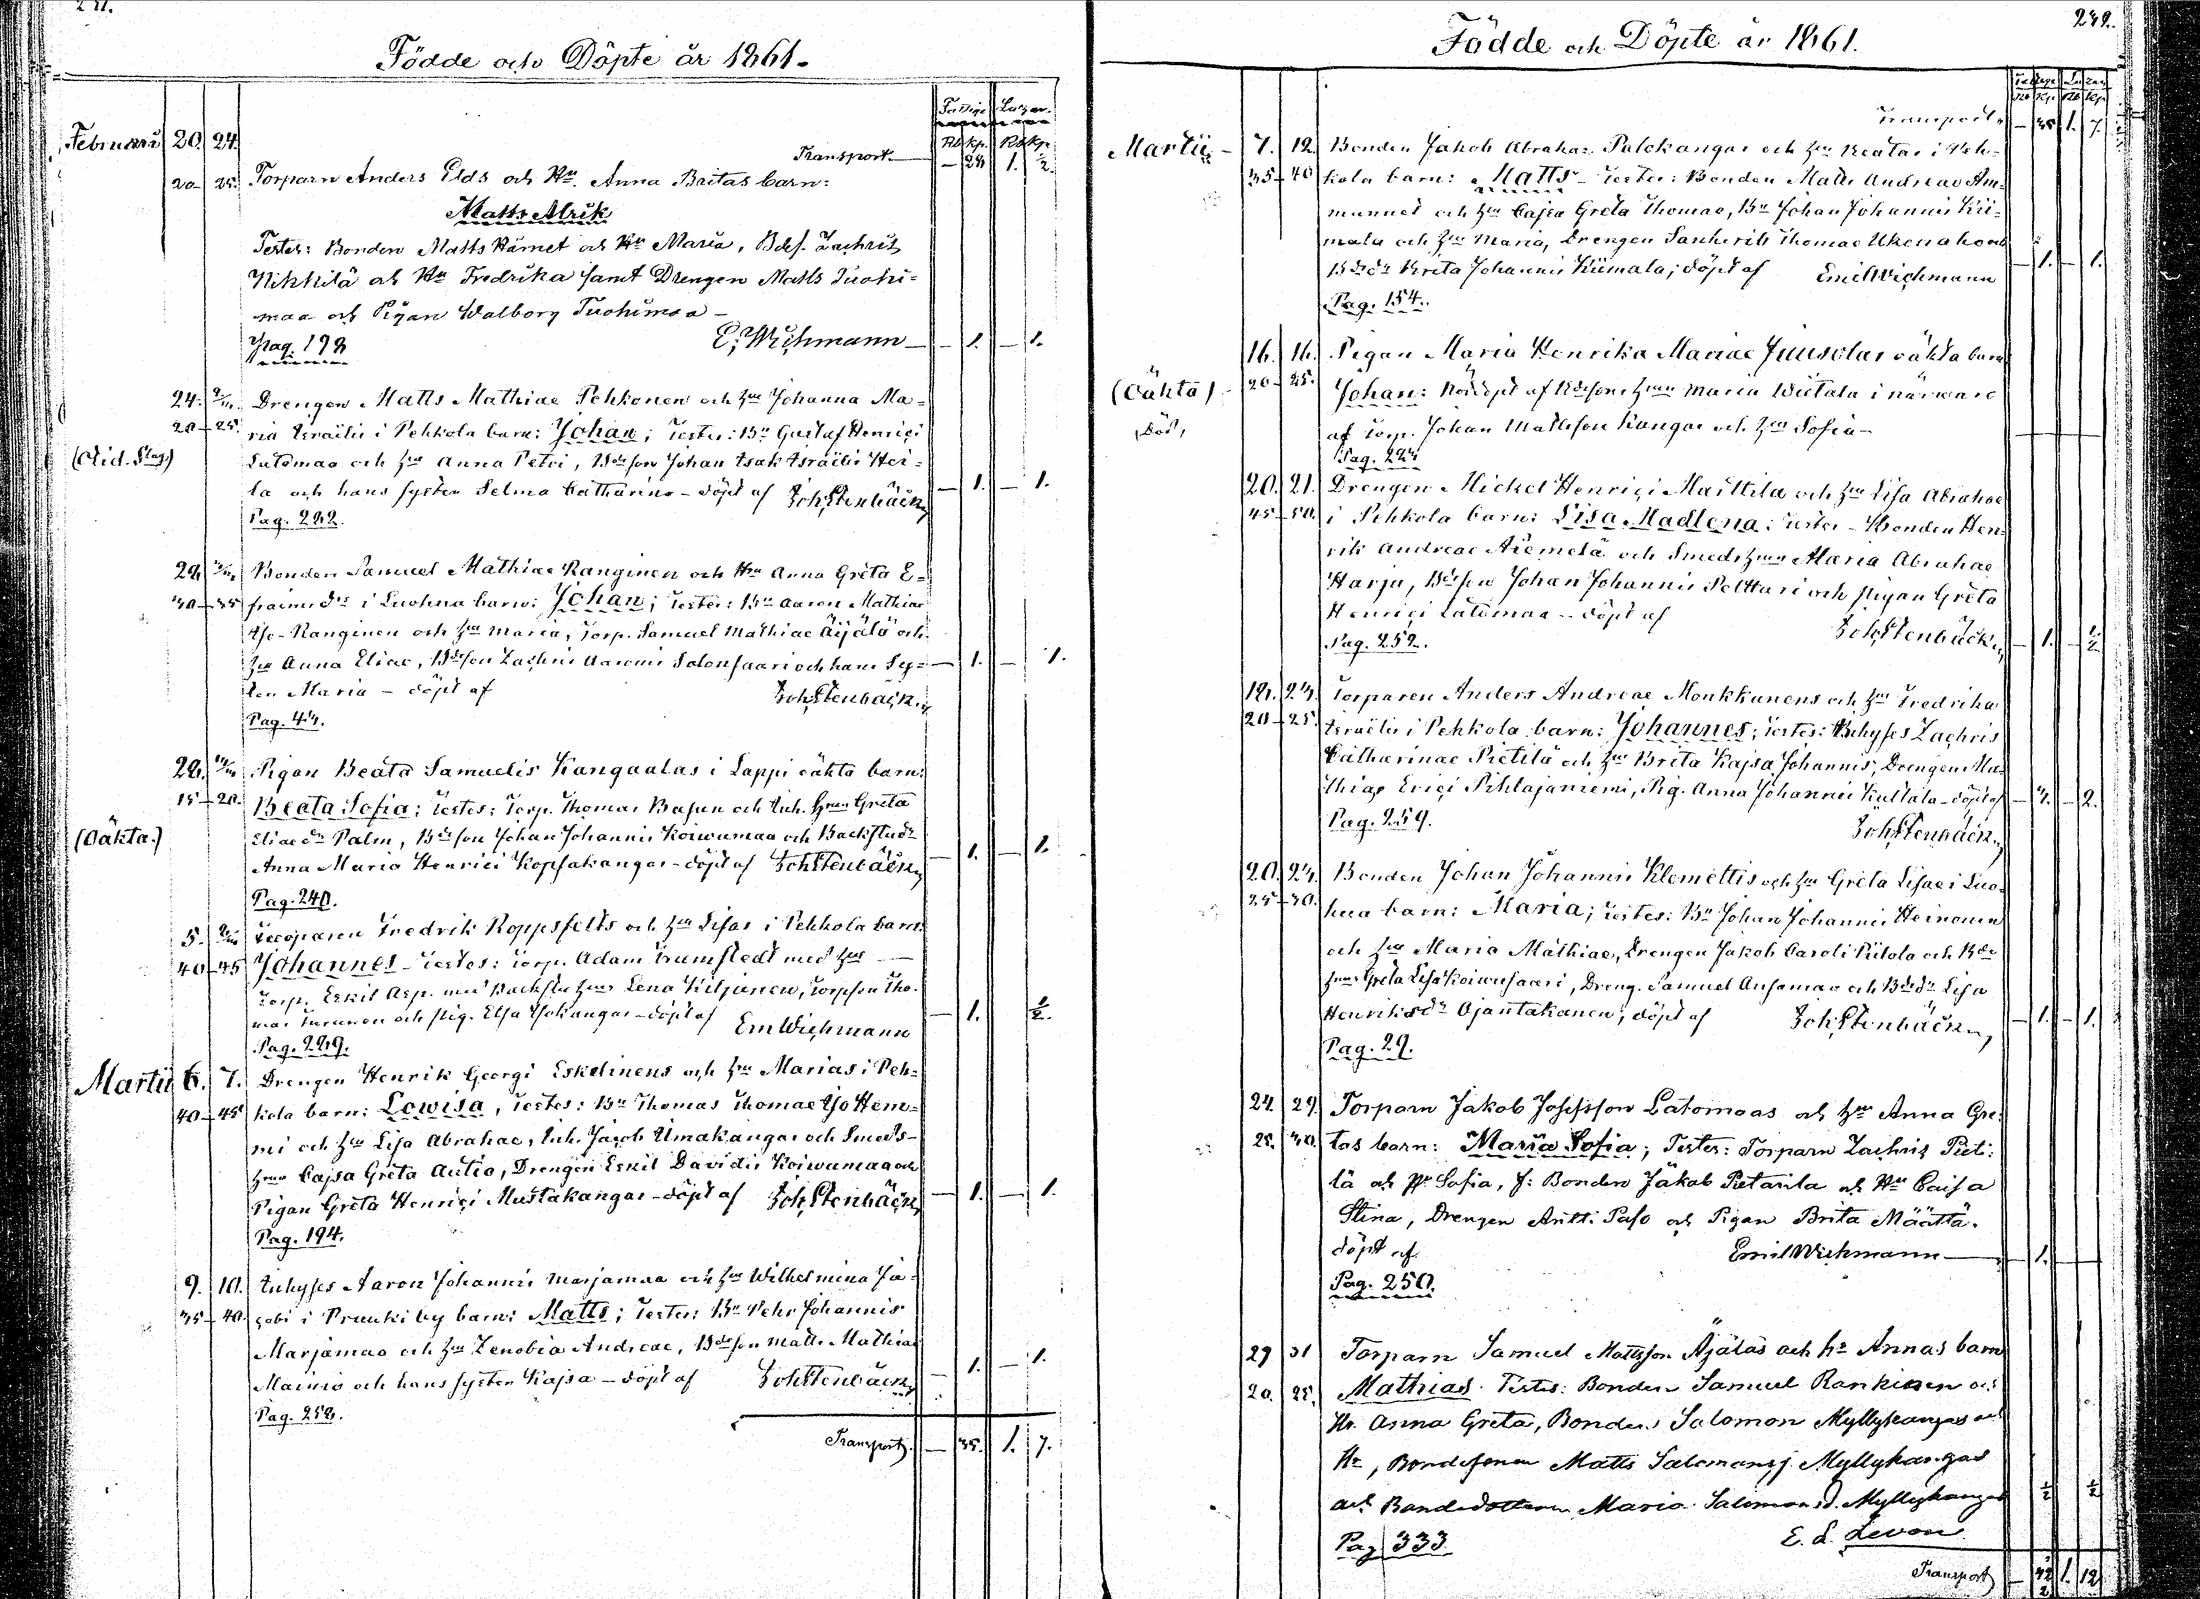 Födde och Döpte år 1861.
Fattige Lazar.
Rb kp. Rb kp.
Transport. — 28 1. ½.
Februarii 20. 24.
20 - 25. Torparn Anders Elds och Hu. Anna Britas barn:
Matts Alrik
Testes: Bonden Matts Härnet och Hu Maria, Bdes. Zachris
Nikkilä och Hu Fredrika samt Drengen Matts Tuohi=
maa och Pigan Walborg Tuohimaa —
Pag. 198 E. Wichmann — — 1. — 1.
24. Drengen Matts Mathiae Pehkonen och hu Johanna Ma=
20 - 25 ria Israëlis i Pehkola barn: Johan; Testes: Bn Gustaf Henrici
Latomaa och hu Anna Petri, Bdeson Johan Isak Israëlis Hei=
la och hans syster Selma Catharina — döpt af Joh Stenbäck — 1. — 1.
Pag. 222.
28 Bonden Samuel Mathiae Ranginen och Hu Anna Greta E=
30 - 35 fraimsdr i Luohua barn: Johan; Testes: Bn Aaron Mathiae
Iso-Ranginen och hu Maria, Torp. Samuel Mathiae Äijälä och
hu Anna Eliae, Bdeson Zachris Aaronis Solonsaari och hans Sys= — 1. — 1.
ter Maria — döpt af Joh Stenbäck
Pag. 44.
28. Pigan Beata Samuelis Kangaalas i Lappi oäkta barn:
15 - 20. Beata Sofia; Testes: Torp. Thomas Basun och Inh. hrun Greta
(Oäkta.) Eliaedr Palm, Bdeson Johan Johannis Koiwumaa och Backstudr
Anna Maria Henrici Kopsakangas — döpt af Joh Stenbäck — 1. 1.
Pag. 240.
5. Torparen Fredrik Roppsfelts och hu Lisas i Pehkola barn:
40 - 45 Johannes — Testes: Torp. Adam Trumstedt med hu —
Torp. Eskil Asp. med Backstu hu Lena Kiljunen, Torpson Tho=
mas Turunen och pig. Elsa Isokangas — döpt af Em Wichmann — 1. ½.
Pag. 229.
Martii 6. 7. Drengen Henrik Georgi Eskelinens och hu Marias i Peh=
40 - 45 kola barn: Lowisa, Testes: Bn Thomas Thomae Iso Hem=
mi och hu Lisa Abrahae, Inh. Jacob Umakangas och Smeds=
hun Cajsa Greta Autio, Drengen Eskil Davidis Koiwumaa och
Pigan Greta Henrici Mustakangas — döpt af Joh Stenbäck — 1. — 1.
Pag. 194.
9. 10. Inhyses Aaron Johannis Marjamaa och hu Wilhelmina Ja=
35 - 40. cobi i Pruuki by barn: Matts; Testes: Bn Pehr Johannis
Marjamaa och hu Zenobia Andreae, Bdeson Matts Mathiae
Mainio och hans syster Kajsa — döpt af Joh Stenbäck — 1. — 1.
Pag. 258.
Transport. — 35. 1. 7.
Födde och Döpte år 1861.
Transport. — 35 1. 7.
Martii — 7. 12. Bonden Jakob Abrahae Palokangas och hu Beatas i Peh=
35 - 40 kola barn: Matts — Testes: Bonden Matts Andreae Am=
munnet och hu Cajsa Greta Thomae, Bn Johan Johannis Kii=
mala och hu Maria, Drengen Sanherib Thomae Ukonaho och
Bdedr Brita Johannis Kiimala; döpt af Emil Wichmann — 1. — 1.
Pag. 154.
16. 16. Pigan Maria Henrika Mariae Juusolas oäkta barn
(Oäkta) 20 - 25. Johan: Nöddöpt af Bdeson hrun Maria Wiitala i närwaro
Död, af Torp. Johan Mattsson Kangas och hu Sofia —
Pag. 224
20. 21. Drengen Mickel Henrici Maittila och hu Lisa Abrahae
45 - 50. i Pehkola barn: Lisa Madlena; Testes — Bonden Hen=
rik Andreae Aiemelä och Smedshun Maria Abrahae
Harju, Bdeson Johan Johannis Pelttari och pigan Greta
Henrici Latomaa — döpt af Joh Stenbäck — 1. — ½
Pag. 252.
18. 24. Torparen Anders Andreae Monkkunens och hu Fredrika
20 - 25. Israëlis i Pehkola barn: Johannes; Testes: Inhyses Zachris
Catharinae Pietilä och hu Brita Kajsa Johannis, Drengen Ma=
thias Erici Pihlajaniemi, Pig. Anna Johannis Kultala — döpt af
Pag. 259. Joh Stenbäck
20. 24. Bonden Johan Johannis Klemettis och hu Greta Lisae i Luo=
25 - 30. hua barn: Maria; Testes: Bn Johan Johannis Heinonen
och hu Maria Mathiae, Drengen Jakob Caroli Piilola och Bde
hu Greta Lisa Koiwusaari, Dreng. Samuel Ansamaa och Bdedr Lisa
Henriksdr Ojantakanen; döpt af Joh Stenbäck — 1. — 1.
Pag. 29.
24. 29. Torparn Jakob Josefsson Latomaas och hu Anna Gre=
25. 30. tas barn: Maria Sofia; Testes: Torparn Zachris Pieti=
lä och Hu Sofia, f: Bonden Jakob Pietarila och Hu Caisa
Stina, Drengen Antti Paso och Pigan Brita Määttä.
döpt af Emil Wichmann — 1.
Pag. 250.
29 31 Torparn Samuel Mattsson Äjäläs och hu Annas barn
20. 25. Mathias. Testes: Bonden Samuel Rankinen och
Hu. Anna Greta, Bonden Salomon Myllykangas och
Hu, Bondesonen Matts Salomonss. Myllykangas
och Bondedottern Maria Salomonsd. Myllykangas ½ ½
Pag 333 E. L. Levon
Transport — 42 ½ 1. 12